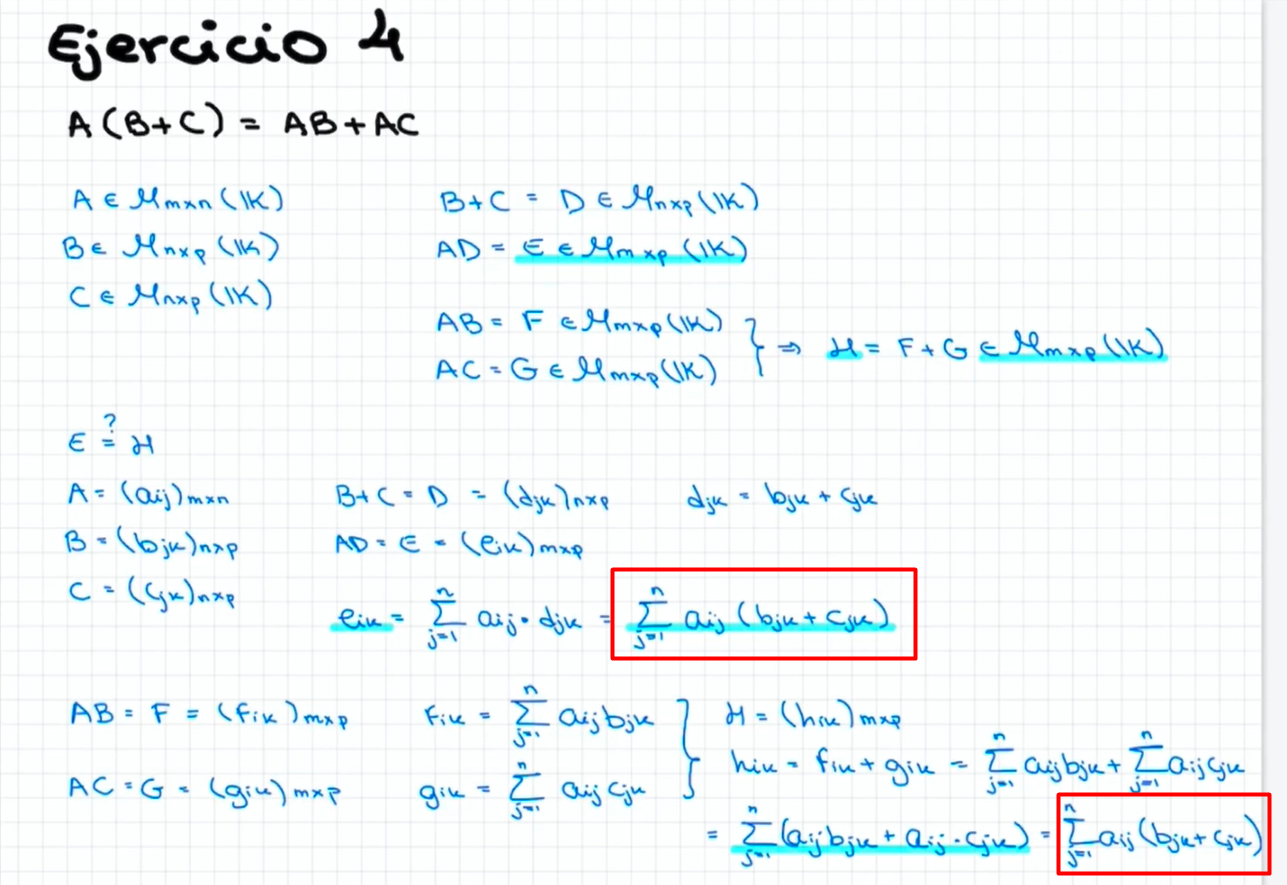 Ejercicio 4
A(B+C) = AB+AC
A ∈ Mmxn (IK)
B ∈ Mnxp (IK)
C ∈ Mnxp (IK)
B+C = D ∈ Mnxp (IK)
AD = E ∈ Mmxp (IK)
AB = F ∈ Mmxp (IK)
AC = G ∈ Mmxp (IK)
} ⇒ H = F+G ∈ Mmxp (IK)
E ≟ H
A = (aij)mxn
B = (bjk)nxp
C = (cjk)nxp
B+C = D = (djk)nxp djk = bjk + cjk
AD = E = (eik)mxp
eik = ∑ⁿj=1 aij · djk = ∑ⁿj=1 aij (bjk + cjk)
AB = F = (fik)mxp fik = ∑ⁿj=1 aijbjk
AC = G = (gik)mxp gik = ∑ⁿj=1 aij cjk
} H = (hik)mxp
hik = fik + gik = ∑ⁿj=1 aijbjk + ∑ⁿj=1 aijcjk
= ∑ⁿj=1 (aijbjk + aij · cjk) = ∑ⁿj=1 aij (bjk + cjk)